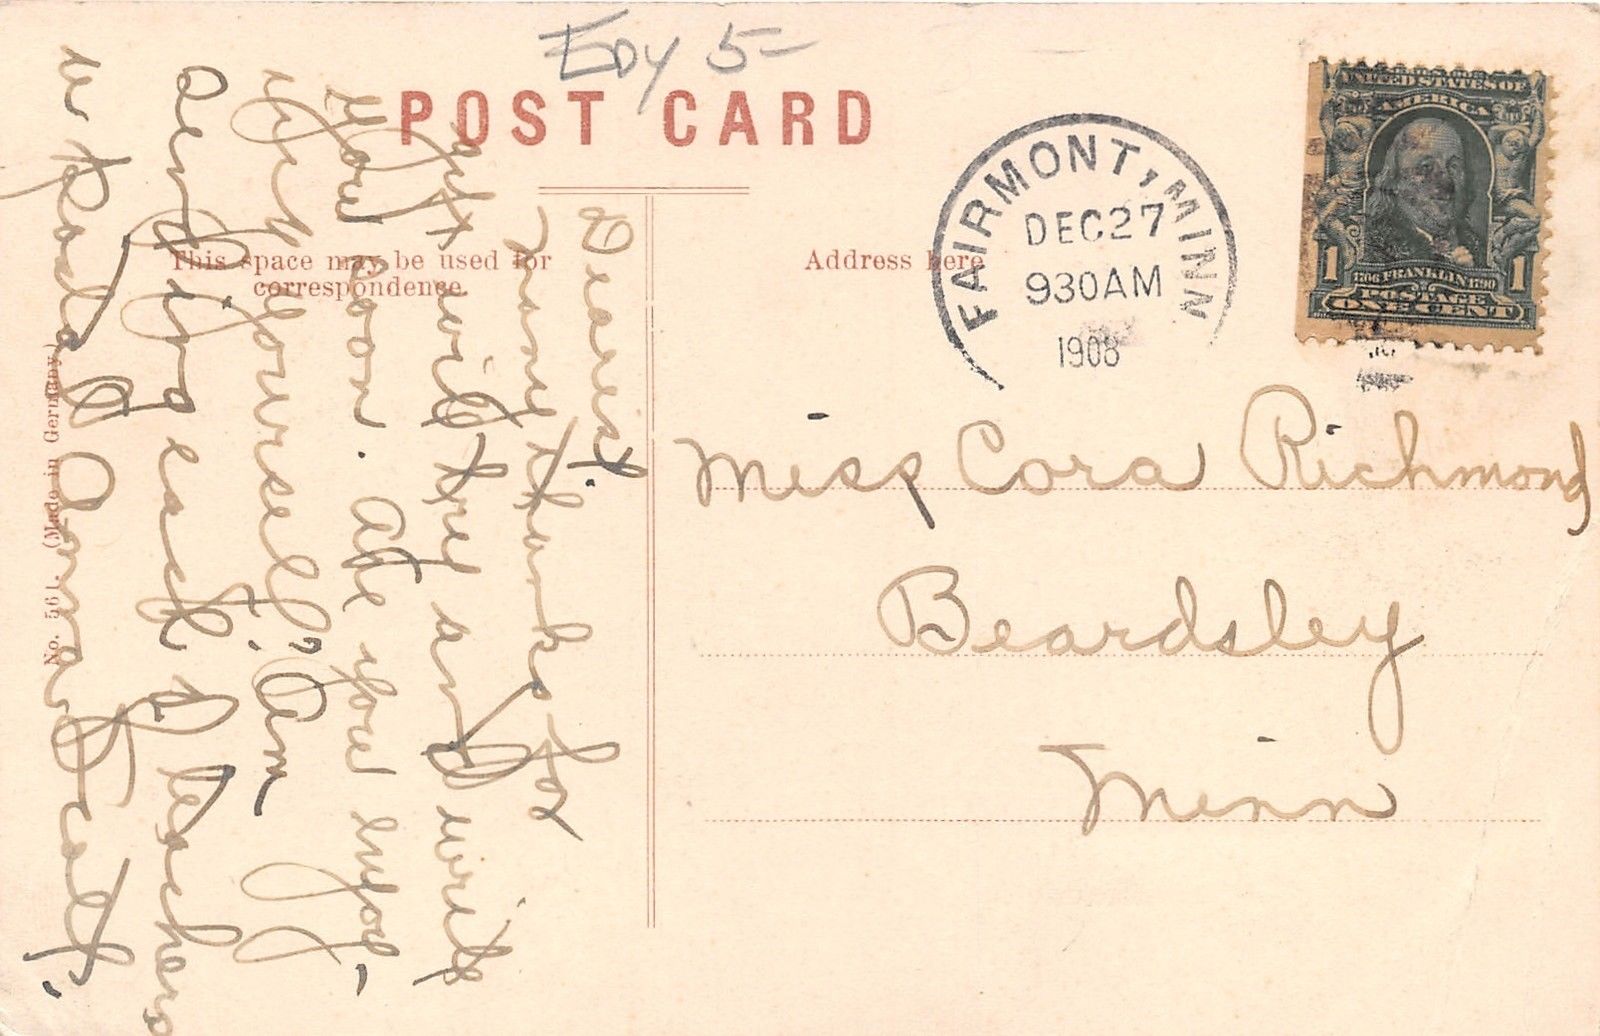 EDY 5-
POST CARD
This space may be used for
correspondence.
Address here
No. 561. (Made in Germany.)
FAIRMONT, MINN
DEC 27
930AM
1908
UNITED STATES OF
AMERICA
1 1
1706 FRANKLIN 1790
POSTAGE
ONE CENT
Miss Cora Richmond
Beardsley
Minn
Dearest.
many thanks for
gift will try and write
you soon. Are you enjoy-
ing yourself? Am
sending each of teachers
a postal